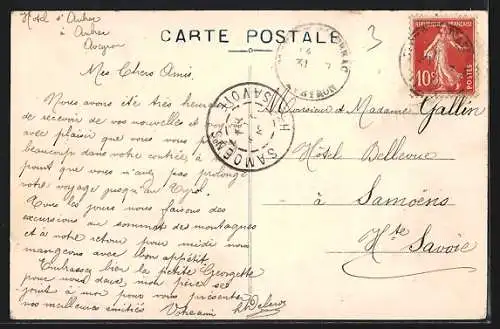 Hotel d'
à
Aveyron
CARTE POSTALE
3
REPUBLIQUE FRANÇAISE
10c
POSTES
AVEYRON
HTE SAVOIE
SAMOENS
Mes Chers Amis.
Nous avons été très heureux
de recevoir de vos nouvelles et
avec plaisir que vous vous
beaucoup dans votre contrée, à
point que vous n'avez pas prolongé
votre voyage jusqu'au Tyrol.
Tous les jours nous faisons des
excursions au sommet des montagnes
et à notre retour pour midi nous
mangeons avec bon appétit.
Embrassez bien la petite Georgette
pour nous deux, mon père se
joint à moi pour vous présenter
nos meilleures amitiés Votre ami
Monsieur et Madame Gallin
Hôtel Bellevue
à Samoëns
Hte Savoie